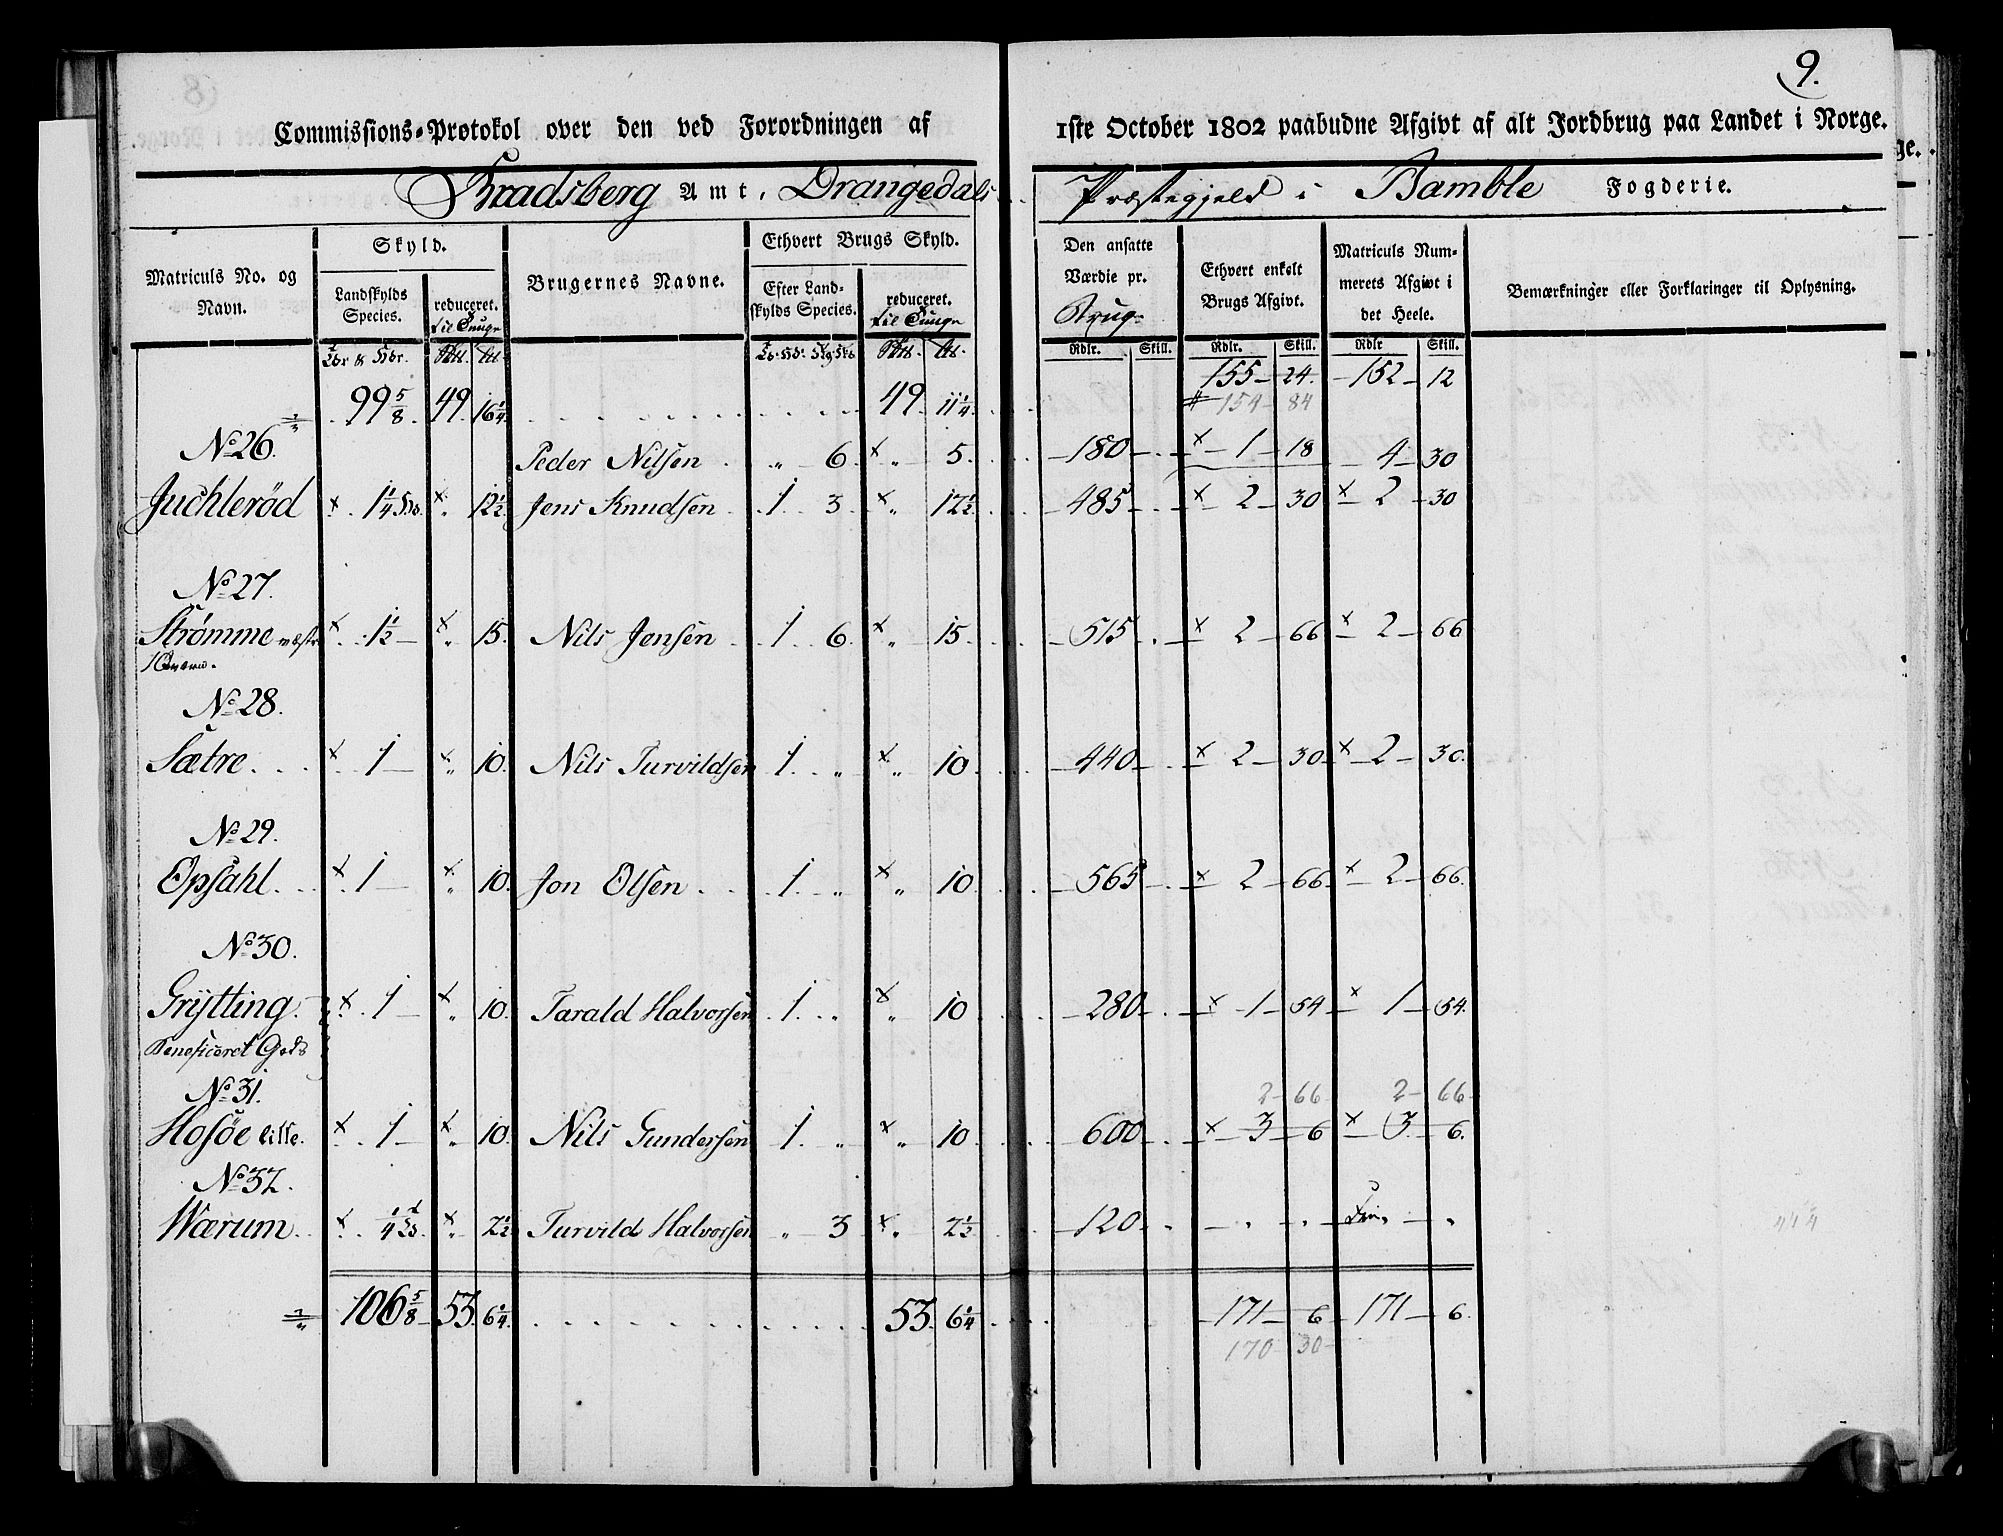 9.
Commissions-Protokol over den ved Forordningen af 1ste October 1802 paabudne Afgivt af alt Jordbrug paa Landet i Norge.
Bradsberg Amt, Drangedals Præstegjeld i Bamble Fogderie.
Matriculs No. og Navn.
Skyld.
Landskylds Species.
reduceret. til Tunge
Brugernes Navne.
Ethvert Brugs Skyld.
Efter Landskylds Species.
reduceret. til Tunge
Den ansatte Værdie pr. Brug.
Ethvert enkelt Brugs Afgivt.
Matriculs Nummerets Afgivt i det Heele.
Bemærkninger eller Forklaringer til Oplysning.
Rdlr. Skill. Rdlr. Skill. Rdlr Skill.
99 5/8 49. 16 1/4 49. 11 1/4 155 24. 152 12
154 84
No 26.
Peder Nilsen " 6 x " 5. 180 x 1 18 4 30
Juchlerød x 1 1/4 x " 12 1/2 Jens Knudsen 1 3 x " 12 1/2 485 x 2 30 x 2 30
No 27.
Strømme x 1 1/2 x " 15. Nils Jensen 1 6. x " 15. 515 x 2 66 x 2 66
No 28.
Sætre x 1 x " 10. Nils Turvildsen 1. " x " 10 440 x 2 30 x 2 30.
No 29.
Opsahl x 1 x " 10. Jon Olsen 1. " x " 10 565 x 2 66 x 2 66.
No 30.
Grytting x 1 x " 10. Tarald Halvorsen 1. " x " 10 280 x 1 54 x 1 54.
Beneficeret Gods
No 31. 2 66 2 66
Hosøe lille. x 1 x " 10. Nils Gundersen 1. " x " 10 600 x 3 6 x 3 6.
No 32.
Wærum x 1/4 x " 2 1/2 Turvild Halvorsen " 3 x " 2 1/2 120 " " Fri. "
106 5/8 53. 6 1/4 53. 6 1/4 171 6 171 6
170 30